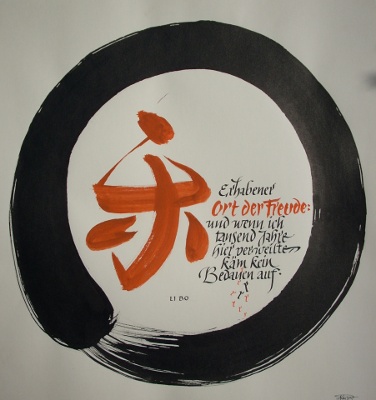 乐
Erhabener
Ort der Freude:
und wenn ich
tausend Jahre
hier verweilte,
käm kein
Bedauern auf.
LI BO